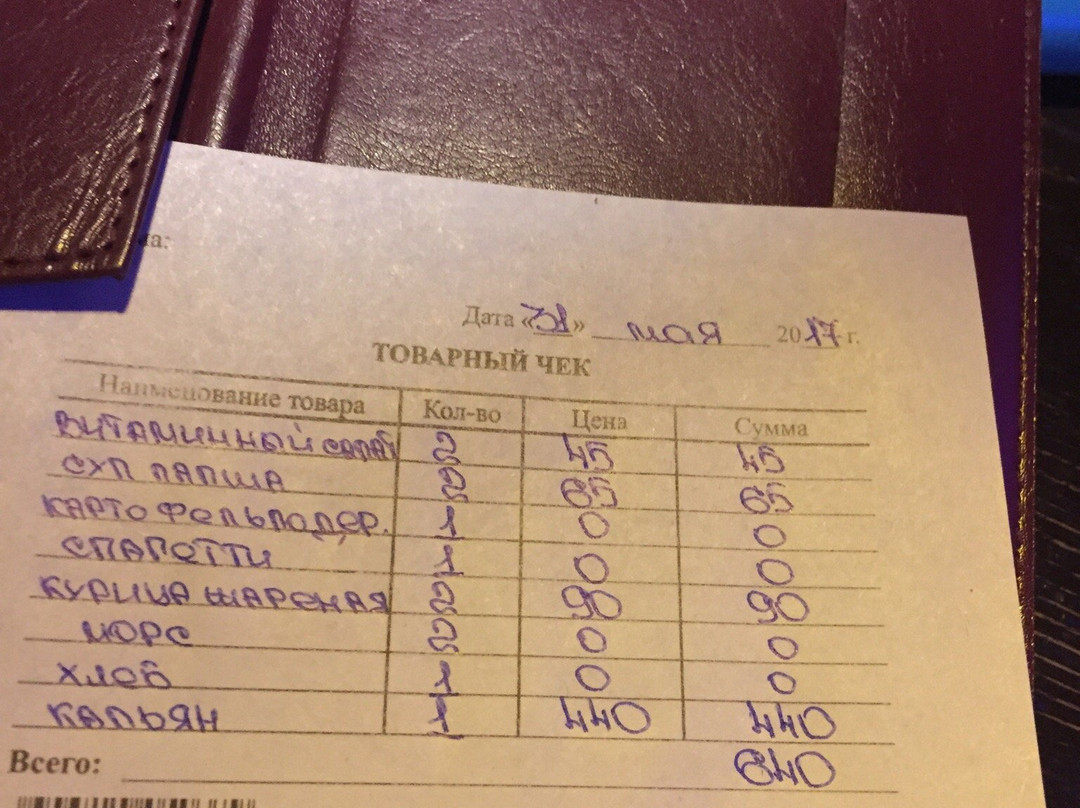 на:
Дата «31» мая 2017 г.
ТОВАРНЫЙ ЧЕК
Наименование товара Кол-во Цена Сумма
ВИТАМИННЫЙ САЛАТ 2 45 45
СУП ЛАПША 2 65 65
КАРТОФЕЛЬ ПО ДЕР. 1 0 0
СПАГЕТТИ 1 0 0
КУРИЦА ЖАРЕНАЯ 2 90 90
МОРС 2 0 0
ХЛЕБ 1 0 0
КАЛЬЯН 1 440 440
Всего: 640